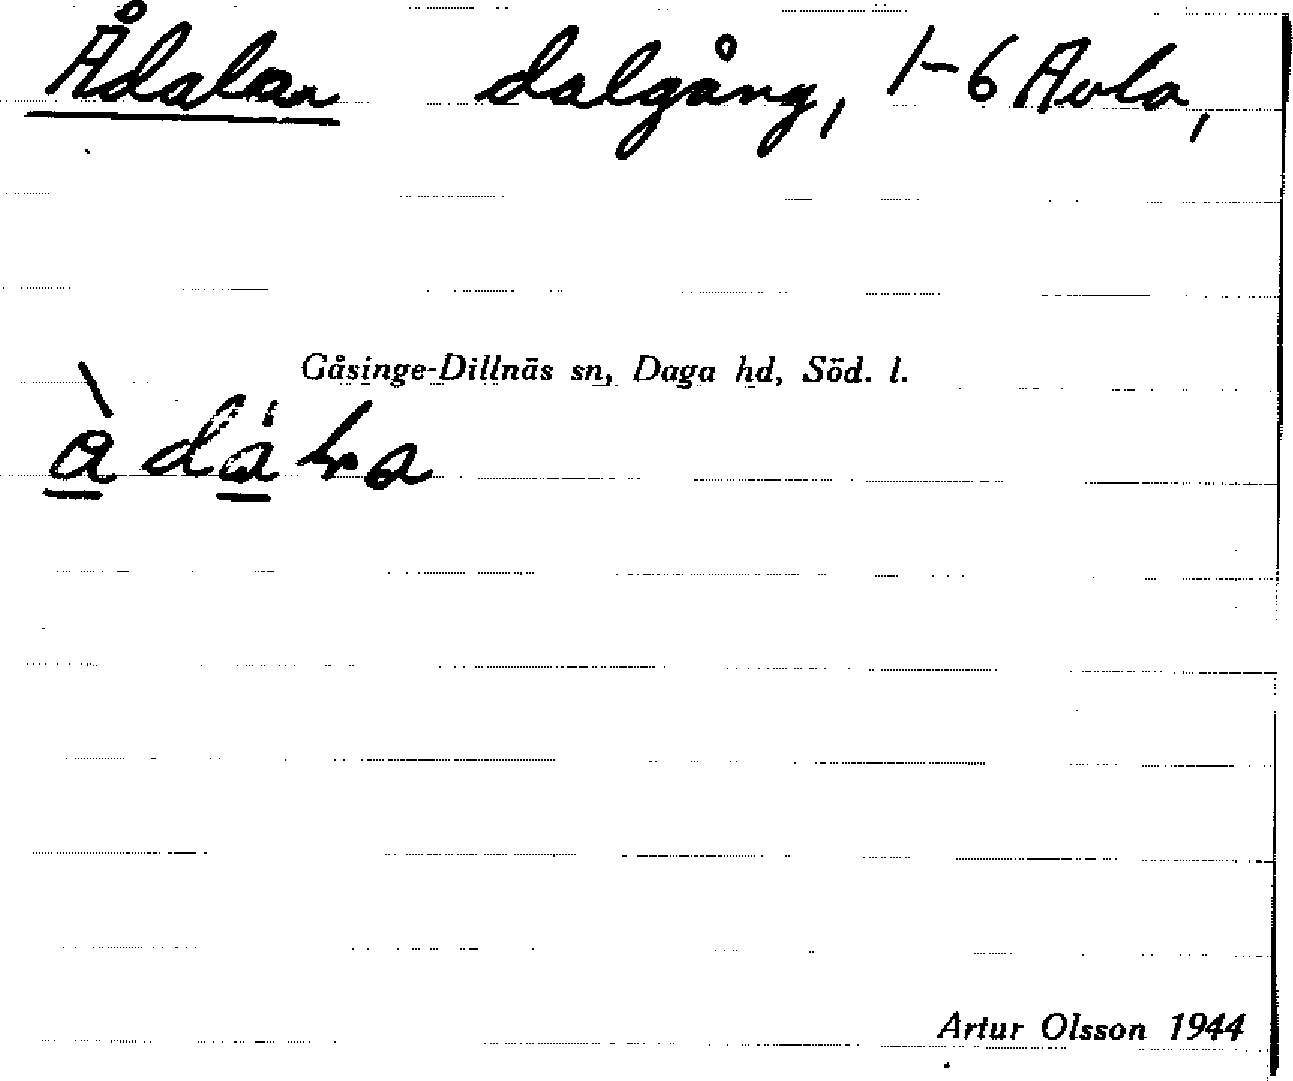 Ådalar dalgång, 1-6 Avla,
Gåsinge-Dillnäs sn, Daga hd, Söd. l.
Artur Olsson 1944